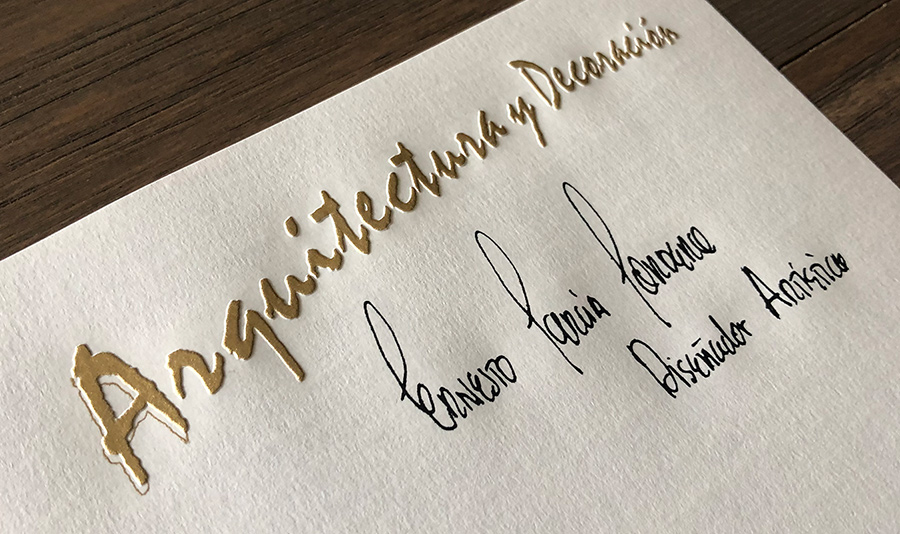 Arquitectura y Decoración
Ernesto Garcia
Diseñador Artístico